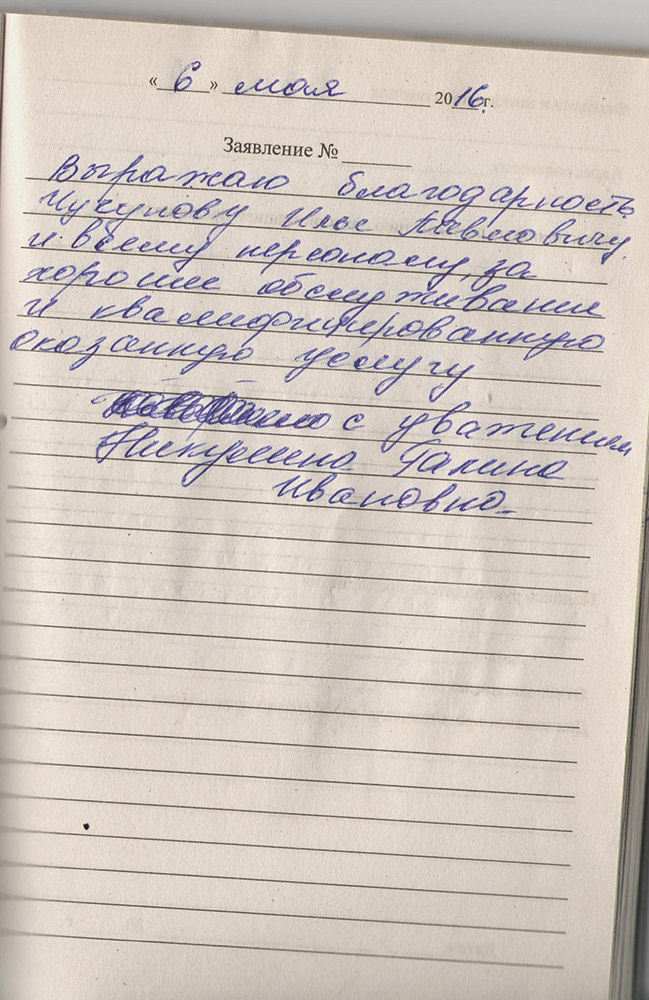 « 6 » мая 2016 г.
Заявление №
Выражаю благодарность
Илье Павловичу
и всему персоналу, за
хорошие обслуживание
и квалифицированную
оказанную услугу
с уважением
Галина
Ивановна